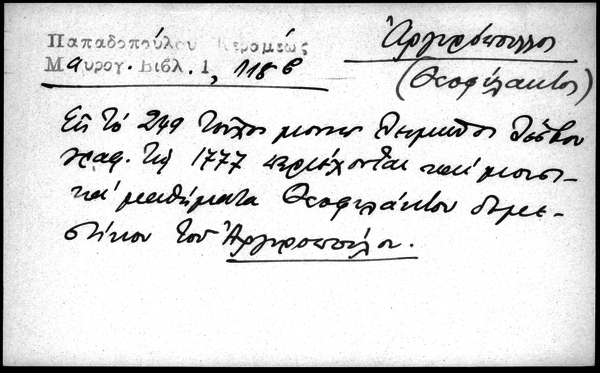 Παπαδοπούλου Κεραμέως
Μαυρογ. Βιβλ. 1, 118 β
Ἀργυρόπουλος
(Θεοφύλακτος)
Εἰς τὸ 249 τεῦχος μονῆς Λειμῶνος Λέσβου
γραφ. τῷ 1777 περιέχονται καὶ μουσι-
κὰ μαθήματα Θεοφυλάκτου δομε-
στίκου τοῦ Ἀργυροπούλου.